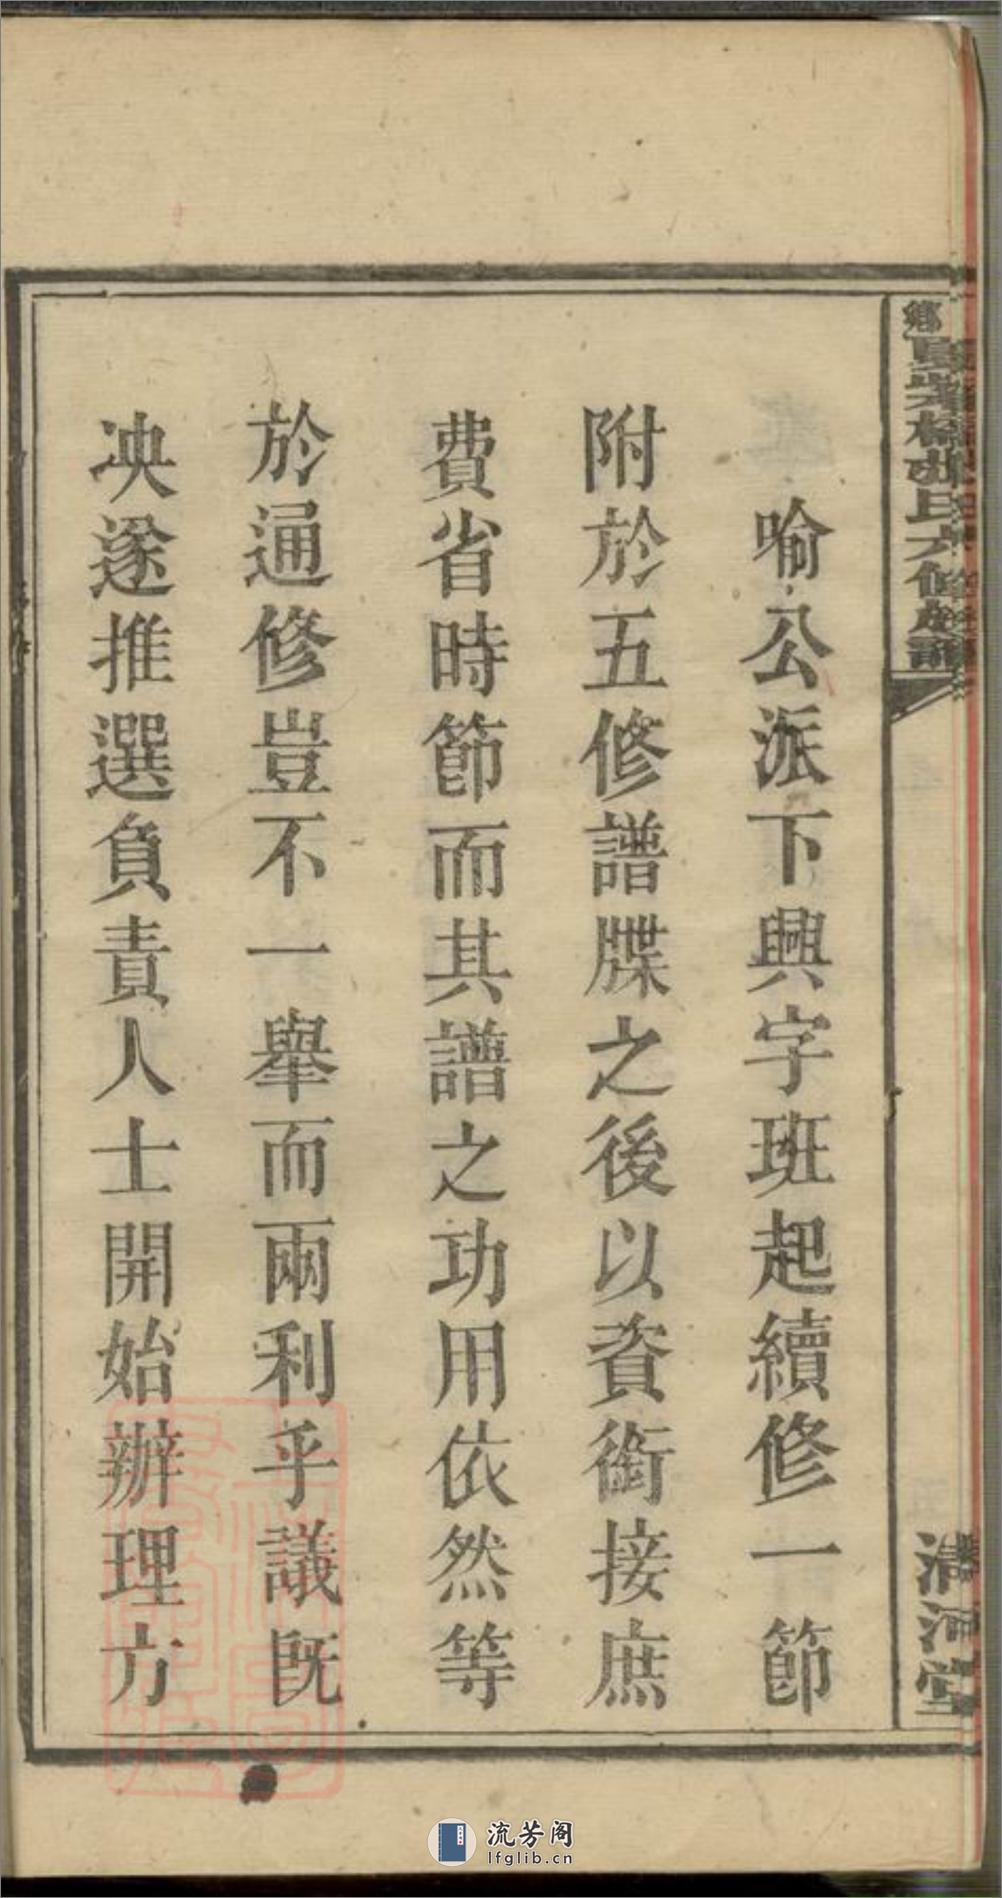 喻公派下興字班起續修一節
附於五修譜牒之後以資銜接庶
費省時節而其譜之功用依然等
於通修豈不一舉而兩利乎議既
决遂推選負責人士開始辦理方
清河堂
流芳阁
lfglib.cn